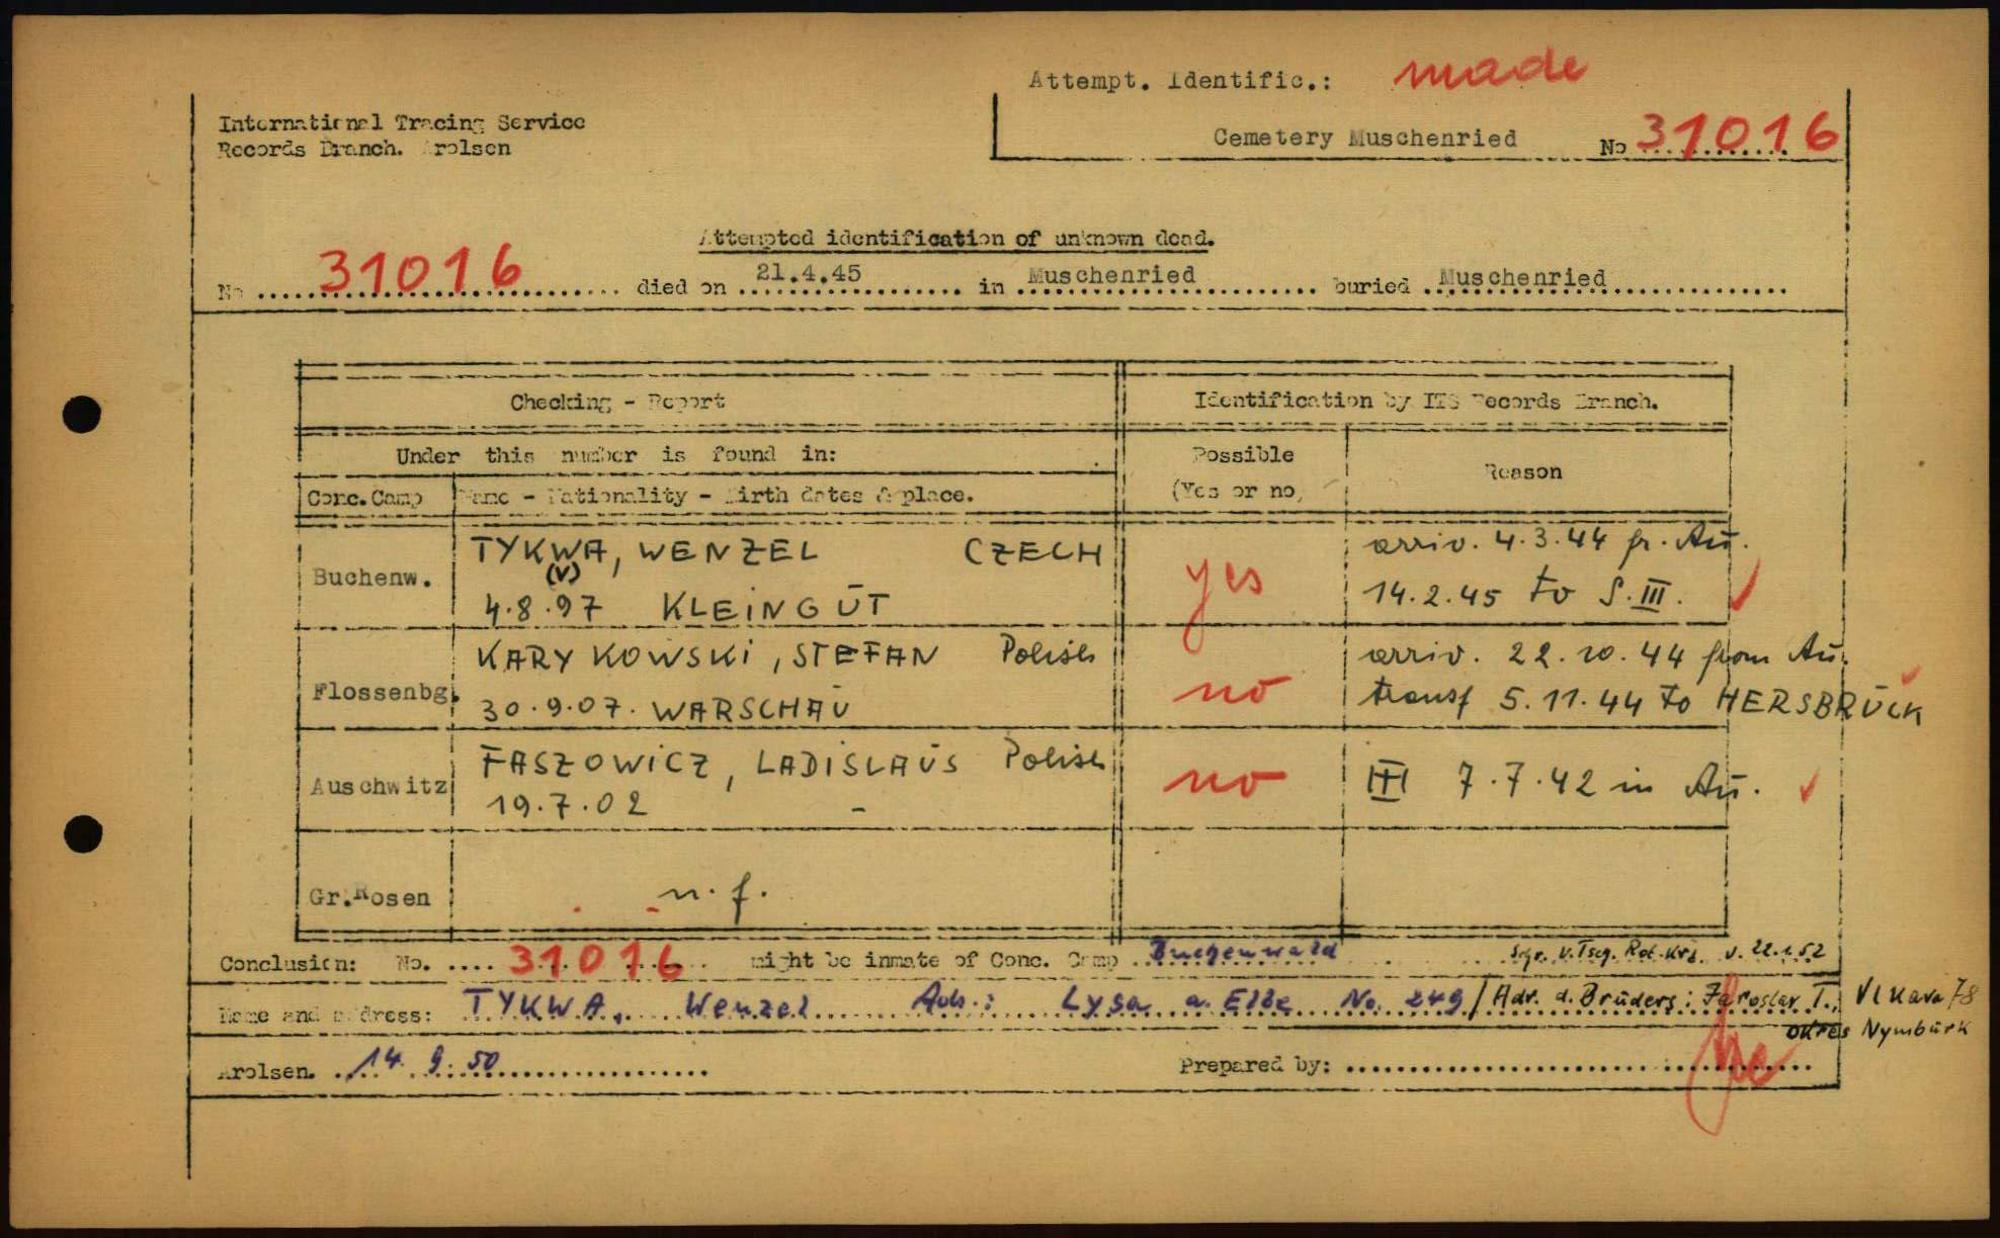 Attempt. Identific.: made
International Tracing Service
Records Branch. Arolsen
Cemetery Muschenried No 31016
Attempted identification of unknown dead.
No 31016 died on 21.4.45 in Muschenried buried Muschenried
Checking - Report Identification by ITS Records Branch.
Under this number is found in: Possible (Yes or no) Reason
Conc.Camp Name - Nationality - Birth dates & place.
Buchenw. TYKWA, WENZEL CZECH yes arriv. 4.3.44 fr. Au.
(V)
4.8.97 KLEINGUT 14.2.45 to S.III.
Flossenbg. KARYKOWSKI, STEFAN Polish no arriv. 22.10.44 from Au.
30.9.07. WARSCHAU transf 5.11.44 to HERSBRUCK
Auschwitz FASZOWICZ, LADISLAUS Polish no 7.7.42 in Au.
19.7.02 -
Gr.Rosen n.f.
Conclusion: No. 31016 might be inmate of Conc. Camp Buchenwald v. 22.1.52
Name and address: TYKWA, Wenzel Adr.: Lysa a. Elbe No. 249 / Adr. d. Bruders: Jaroslav T., Vlkava 78
okres Nymburk
Arolsen. 14.9.50 Prepared by: